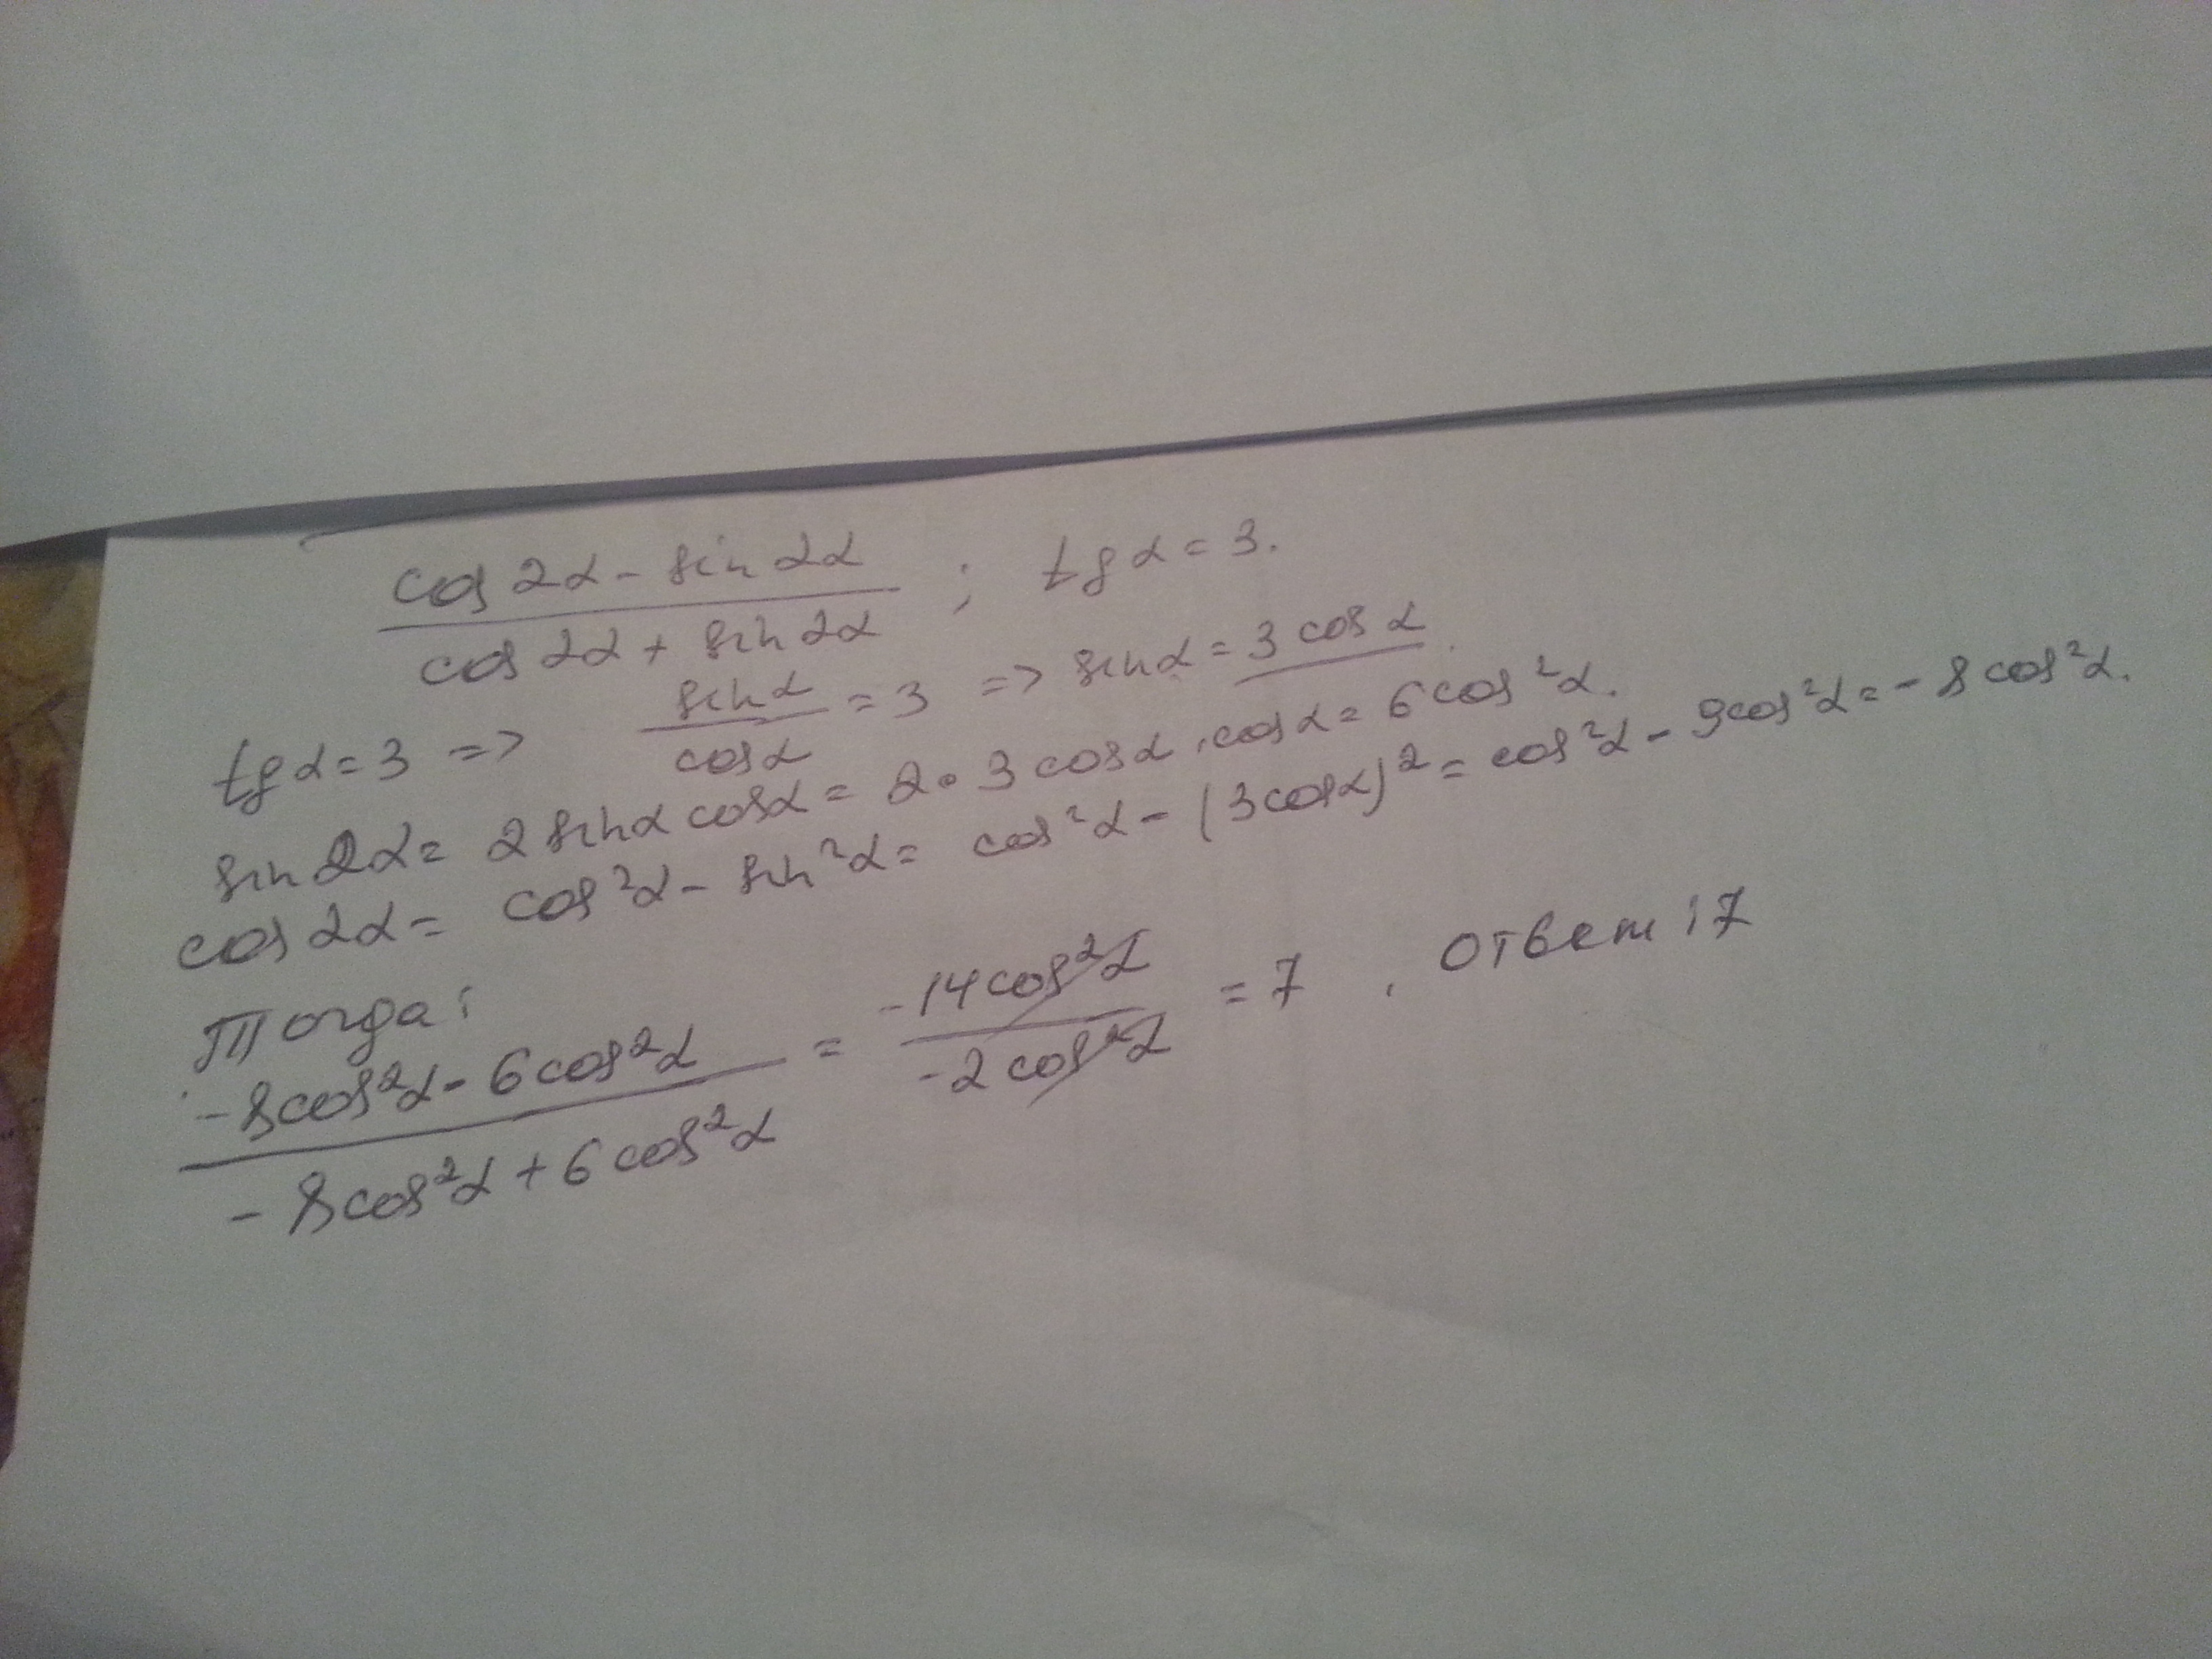 (cos 2α - sin 2α) / (cos 2α + sin 2α) ; tg α = 3.
tg α = 3 => sin α / cos α = 3 => sin α = 3 cos α.
sin 2α = 2 sin α cos α = 2 · 3 cos α · cos α = 6 cos²α.
cos 2α = cos²α - sin²α = cos²α - (3 cos α)² = cos²α - 9cos²α = - 8 cos²α.
Тогда:
(-8cos²α - 6cos²α) / (-8cos²α + 6cos²α) = (-14cos²α) / (-2cos²α) = 7 . Ответ : 7